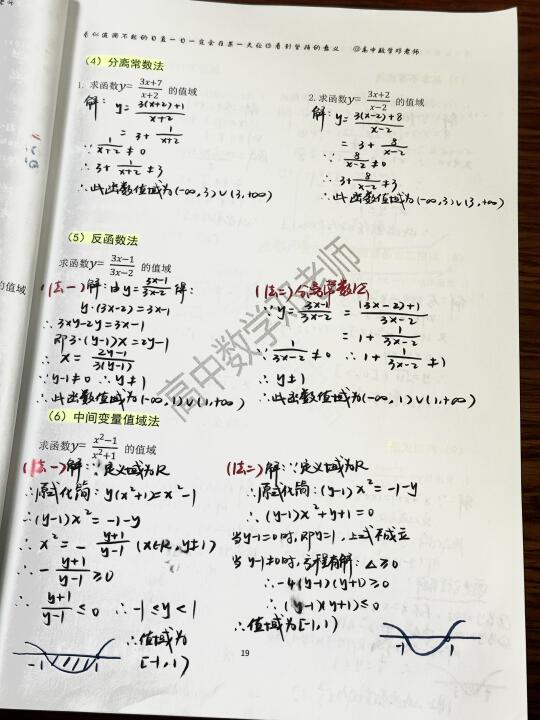 看似波澜不惊的日复一日一定会在某一天让你看到坚持的意义 @高中数学邓老师
(4) 分离常数法
1. 求函数y= \frac{3x+7}{x+2} 的值域
解: y= \frac{3(x+2)+1}{x+2}
= 3+ \frac{1}{x+2}
∵ \frac{1}{x+2} ≠0
∴ 3+ \frac{1}{x+2} ≠3
∴此函数值域为(-∞,3)∪(3,+∞)
2. 求函数y= \frac{3x+2}{x-2} 的值域
解: y= \frac{3(x-2)+8}{x-2}
= 3+ \frac{8}{x-2}
∵ \frac{8}{x-2} ≠0
∴ 3+ \frac{8}{x-2} ≠3
∴此函数值域为(-∞,3)∪(3,+∞)
(5) 反函数法
求函数y= \frac{3x-1}{3x-2} 的值域
(法一) 解: 由y= \frac{3x-1}{3x-2} 得:
y·(3x-2)=3x-1
∴ 3xy-2y=3x-1
即3·(y-1)x=2y-1
∴ x= \frac{2y-1}{3(y-1)}
∵y-1≠0 ∴y≠1
∴此函数值域为(-∞,1)∪(1,+∞)
(法二) 分离常数法
∵ y= \frac{3x-1}{3x-2} = \frac{(3x-2)+1}{3x-2}
= 1+ \frac{1}{3x-2}
∵ \frac{1}{3x-2} ≠0 ∴ 1+ \frac{1}{3x-2} ≠1
∴ y≠1
∴此函数值域为(-∞,1)∪(1,+∞)
(6) 中间变量值域法
求函数y= \frac{x²-1}{x²+1} 的值域
(法一) 解: ∵定义域为R
∴原式化简: y(x²+1)=x²-1
∴(y-1)x²=-1-y
∴ x²=- \frac{y+1}{y-1} (x∈R,y≠1)
∴ - \frac{y+1}{y-1} ≥0
∴ \frac{y+1}{y-1} ≤0 ∴-1≤y<1
∴值域为
[-1,1)
-1 1
(法二) 解: ∵定义域为R
∴原式化简: (y-1)x²=-1-y
∴(y-1)x²+y+1=0
当y-1=0时,即y=1,上式不成立
当y-1≠0时,方程有解: △≥0
∴-4(y-1)(y+1)≥0
∴(y-1)(y+1)≤0
∴值域为[-1,1)
-1 1
19
高中数学邓老师
的值域